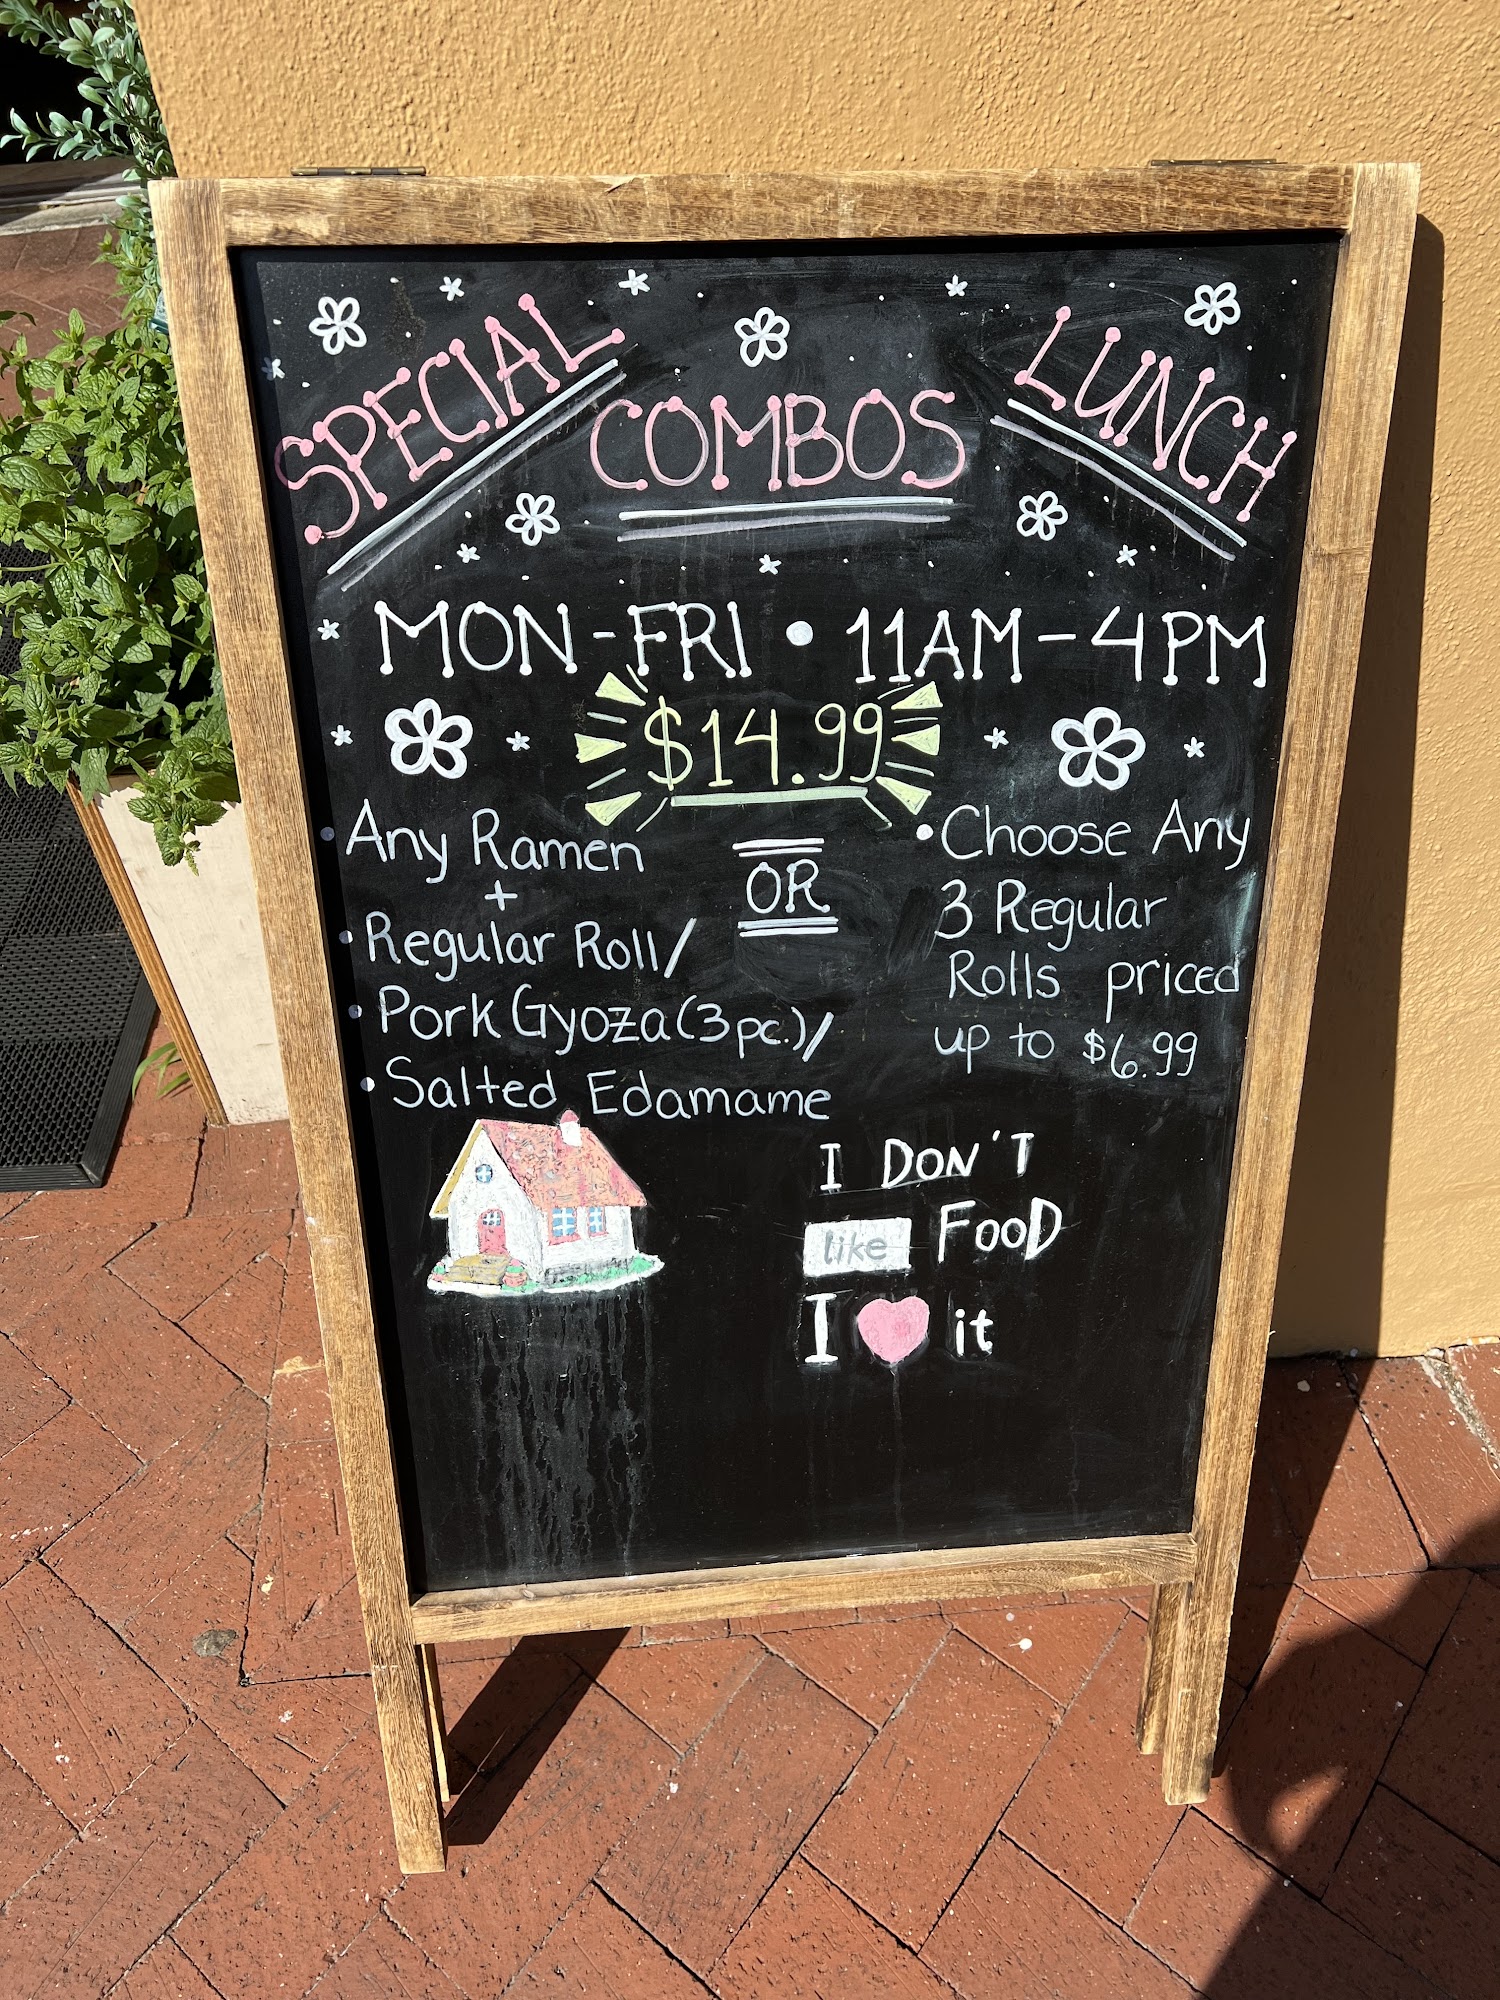 SPECIAL COMBOS LUNCH
MON-FRI • 11AM-4PM
$14.99
• Any Ramen
+
• Regular Roll/
• Pork Gyoza (3pc.)/
• Salted Edamame
OR
• Choose Any
3 Regular
Rolls priced
up to $6.99
I DON'T
like FOOD
I ♥ it